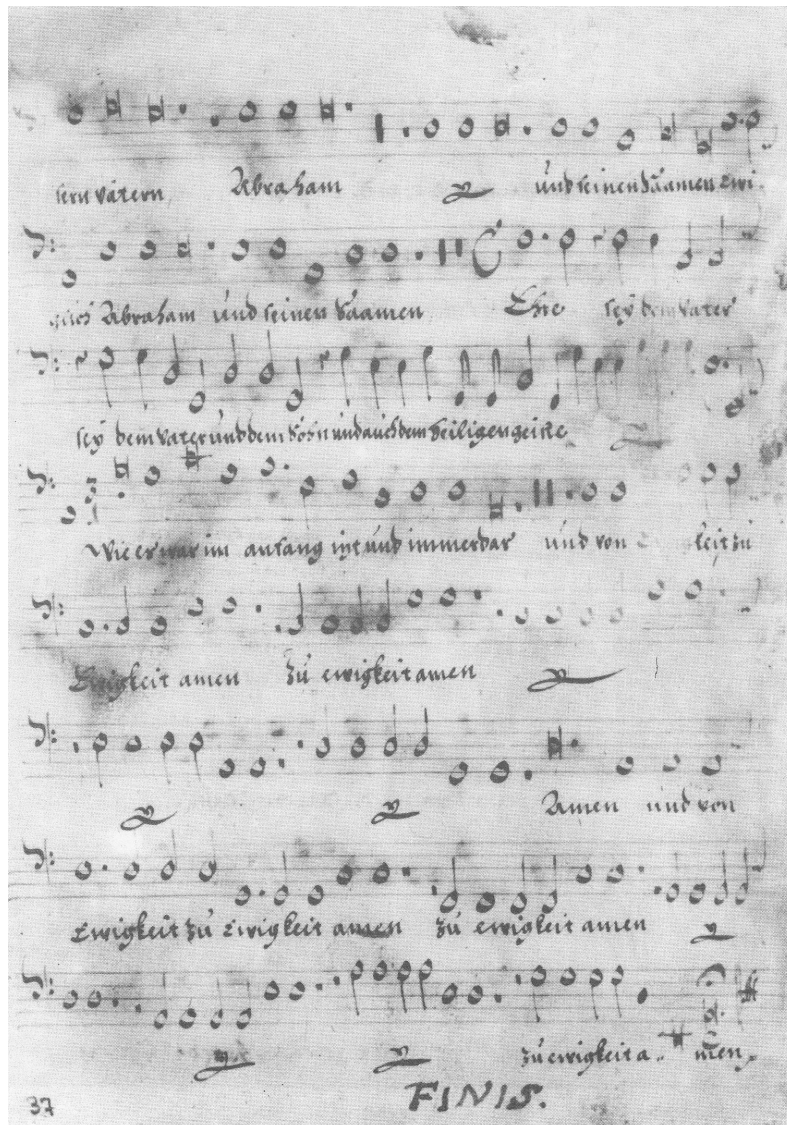 sern vätern Abraham und seinen Säamen Ewi-
glich Abraham und seinen Säamen Ehre sey dem Vater
sey dem Vater und dem Sohn und auch dem Heiligen geiste
Wie er war im anfang ist und immerdar und von Ewigkeit zu
Ewigkeit amen zu ewigkeit amen
Amen und von
Ewigkeit zu Ewigkeit amen zu ewigkeit amen
zu ewigkeit a- men.
37 FINIS.